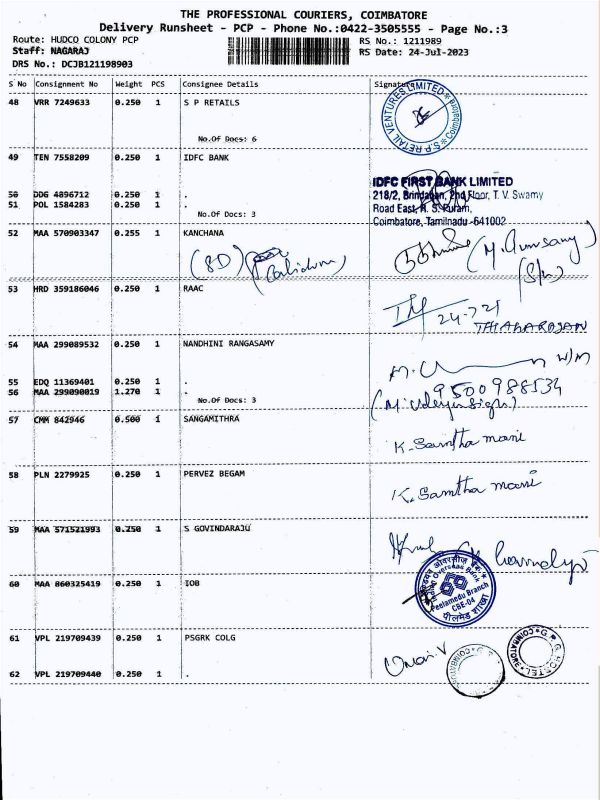 THE PROFESSIONAL COURIERS, COIMBATORE
Delivery Runsheet - PCP - Phone No.:0422-3505555 - Page No.:3
Route: HUDCO COLONY PCP RS No.: 1211989
Staff: NAGARAJ RS Date: 24-Jul-2023
DRS No.: DCJB121198903
S No Consignment No Weight PCS Consignee Details Signature
48 VRR 7249633 0.250 1 S P RETAILS
No.Of Docs: 6
S.P.S. RETAIL VENTURES LIMITED Coimbatore
49 TEN 7558209 0.250 1 IDFC BANK
IDFC FIRST BANK LIMITED
50 DDG 4896712 0.250 1 . 218/2, Brindavan, 2nd Floor, T. V. Swamy
51 POL 1584283 0.250 1 . Road East, R. S. Puram,
No.Of Docs: 3 Coimbatore, Tamilnadu -641002
52 MAA 570903347 0.255 1 KANCHANA
(8D)
(S/n)
53 HRD 359186046 0.250 1 RAAC
24-7-21
THIAGARAJAN
54 MAA 299089532 0.250 1 NANDHINI RANGASAMY
W/M
55 EDQ 11369401 0.250 1 .
56 MAA 299090019 1.270 1 . 9500988534
No.Of Docs: 3
57 CMM 842946 0.500 1 SANGAMITHRA
K. Santha mani
58 PLN 2279925 0.250 1 PERVEZ BEGAM
K. Santha mani
59 MAA 571521993 0.250 1 S GOVINDARAJU
60 MAA 860325419 0.250 1 IOB
Indian Overseas Bank
Peelamedu Branch
CBE-04
पीलमेडु शाखा
61 VPL 219709439 0.250 1 PSGRK COLG
G.P.G HOSTEL COIMBATORE
62 VPL 219709440 0.250 1 .